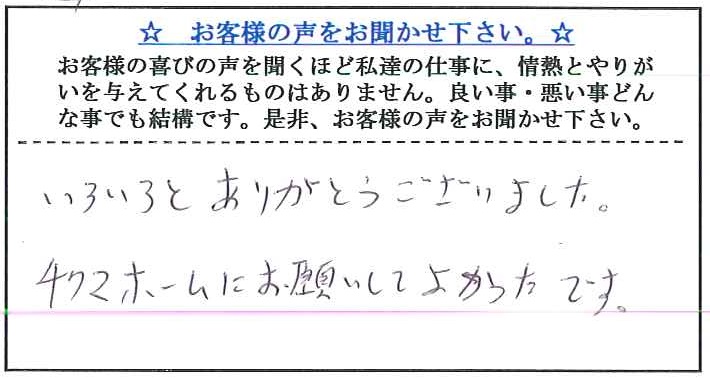 ☆ お客様の声をお聞かせ下さい。☆
お客様の喜びの声を聞くほど私達の仕事に、情熱とやりが
いを与えてくれるものはありません。良い事・悪い事どん
な事でも結構です。是非、お客様の声をお聞かせ下さい。
いろいろとありがとうございました。
チクマホームにお願いしてよかったです。